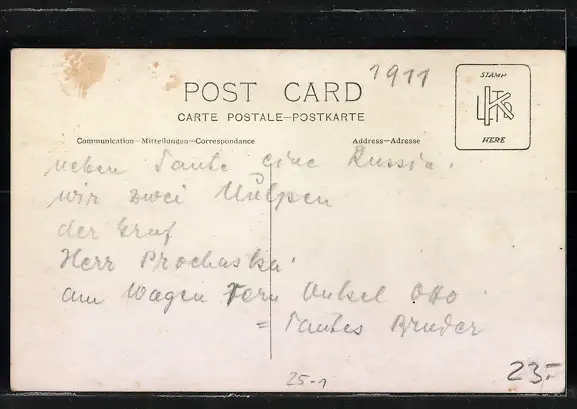 1911
POST CARD
CARTE POSTALE—POSTKARTE
STAMP
HERE
Communication—Mitteilungen—Correspondance
Address—Adresse
neben Tante eine Russin.
wir zwei
der Graf
Herr Prochaska
am Wagen vorn Onkel Otto
= Tantes Bruder
25-1
23.-